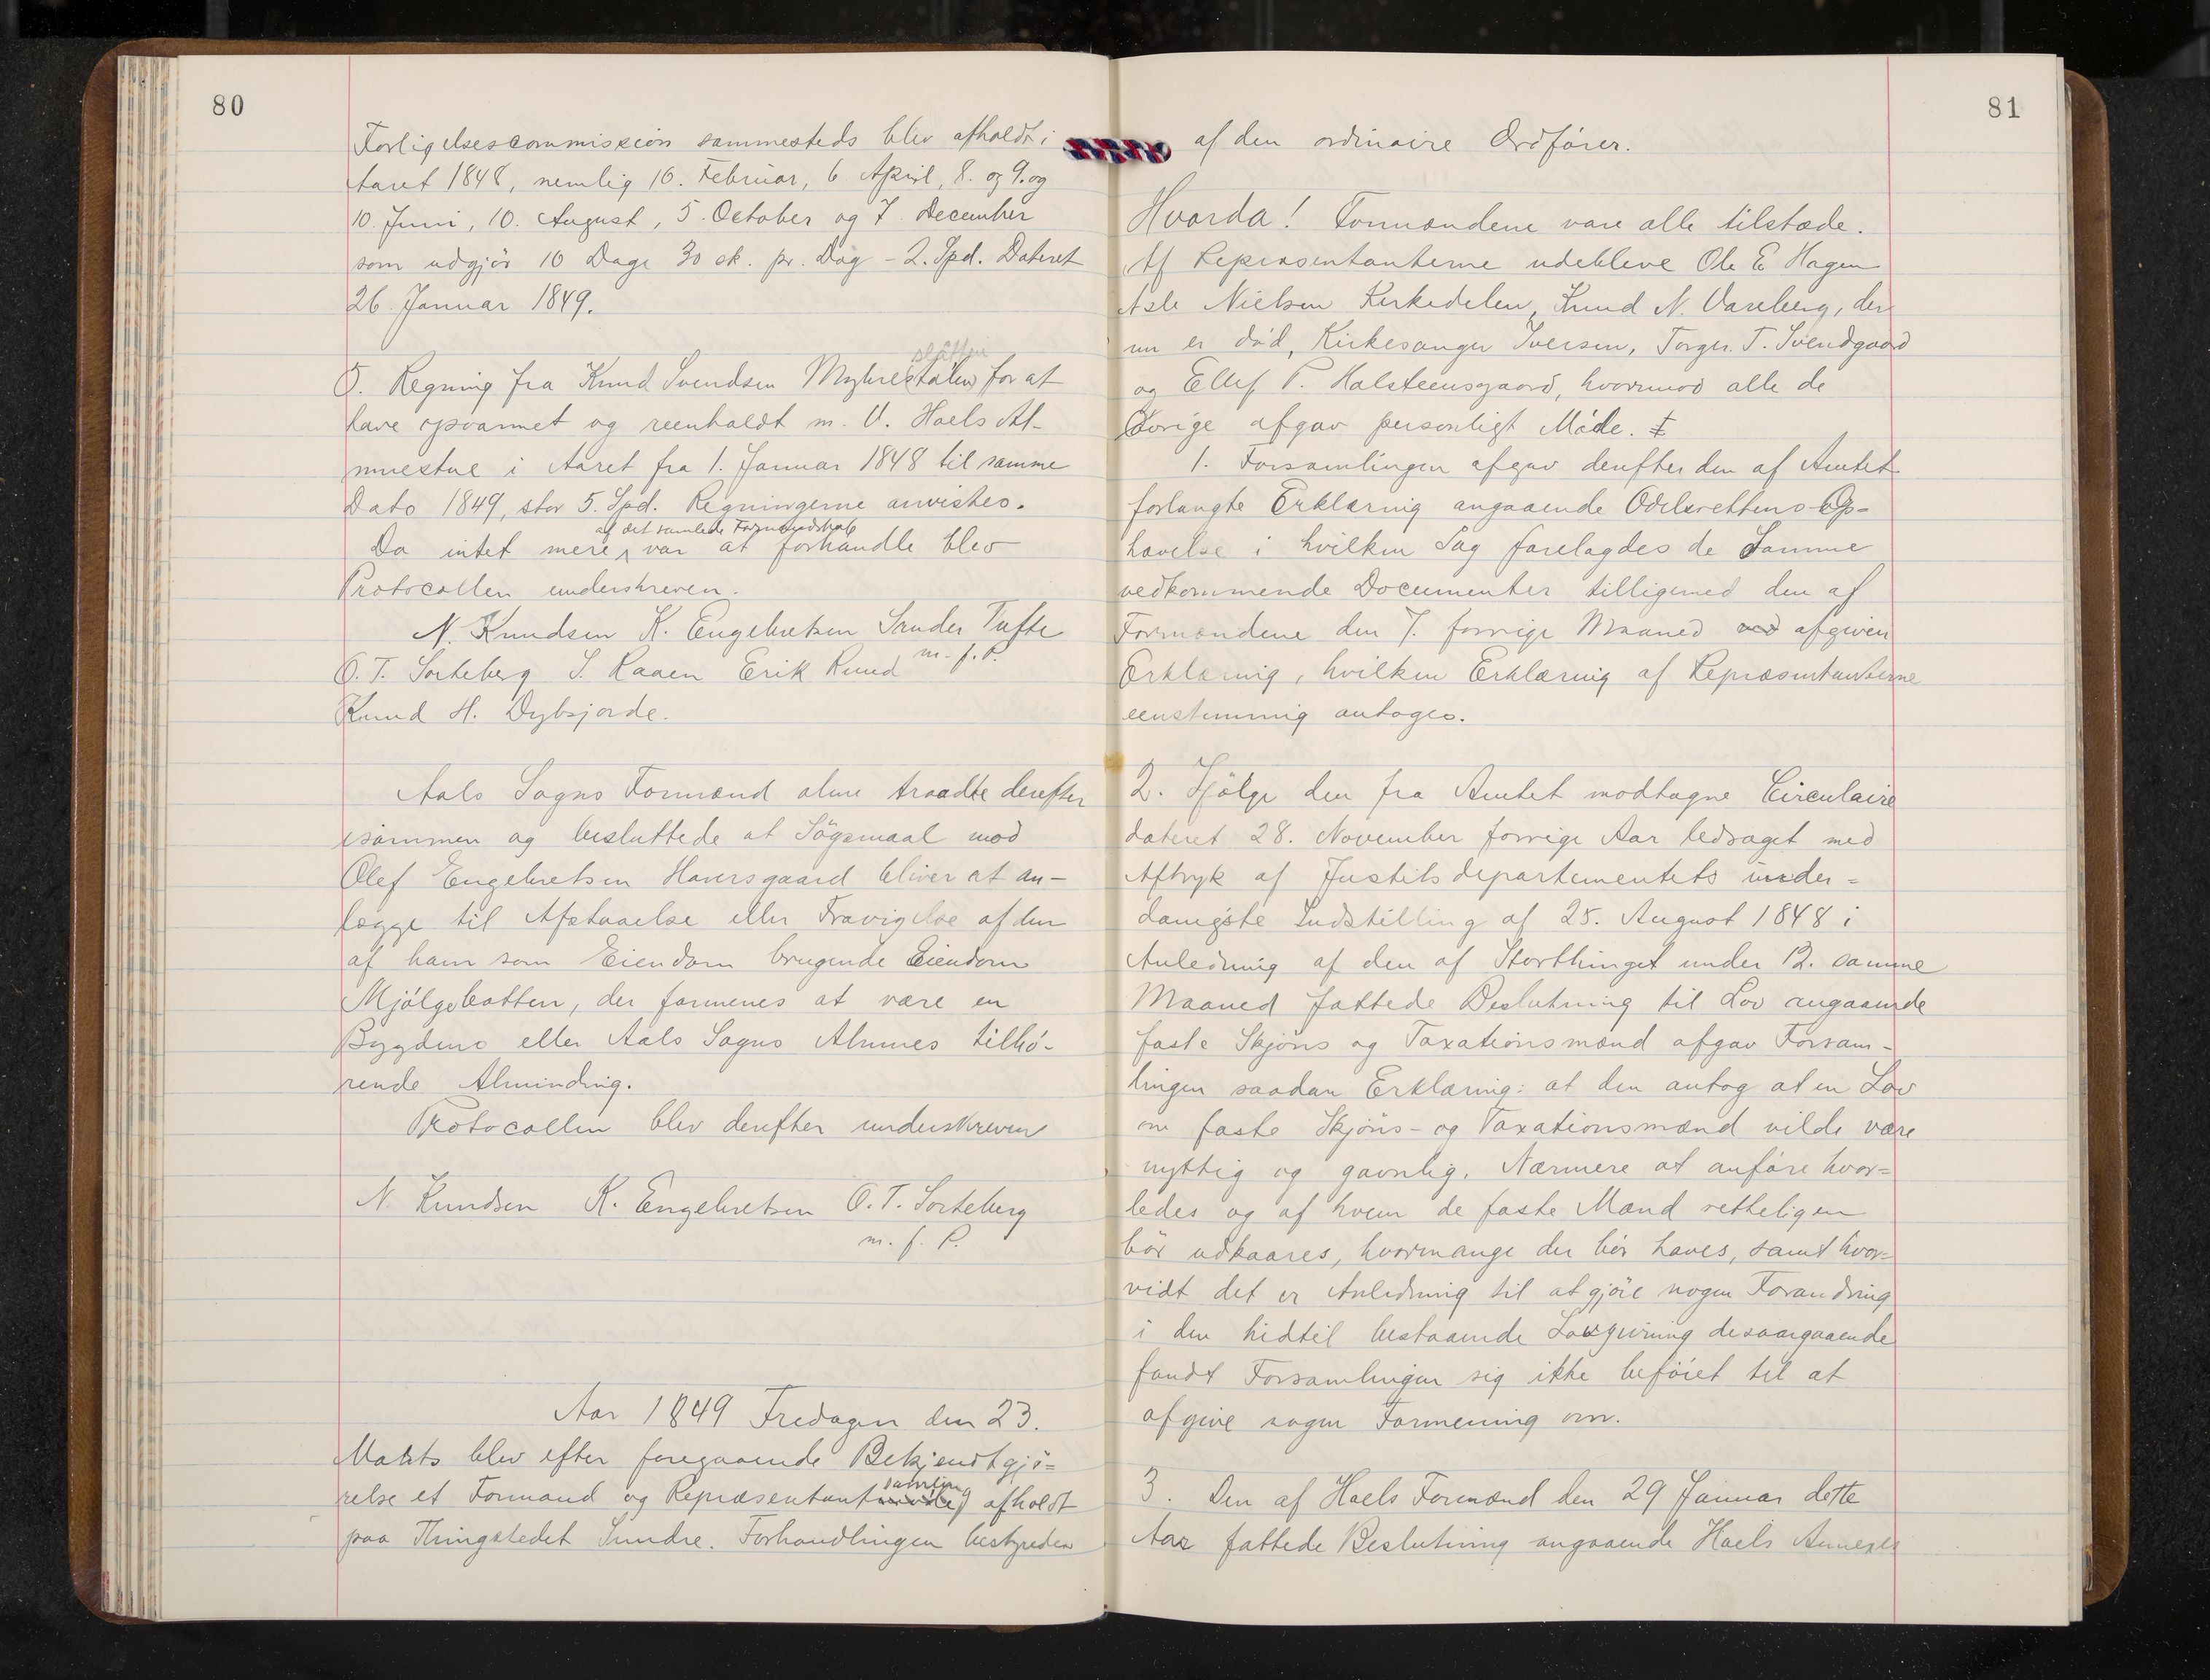 80
Forligelsescommission sammesteds blev afholdt i
Aaret 1848, nemlig 16. Februar, 6 April, 8. og 9. og
10. Juni, 10. August, 5. October og 7. December
som udgjör 10 Dage 30 sk. pr. Dag - 2. Spd. Dateret
26. Januar 1849.
slåtten
5. Regning fra Knud Svendsen Myhrestølen for at
have opvarmet og reenholdt m. V. Hoels Al-
muestue i Aaret fra 1. Januar 1848 til samme
Dato 1849, stor 5. Spd. Regningerne anvistes.
af det samlede Formandskab
Da intet mere var at forhandle blev
Protocollen underskreven.
N. Knudsen K. Engebretsen Sander Tufte
m. f. P.
O. T. Sorteberg S. Raaen Erik Ruud
Knud H. Dybsjorde.
Aals Sogns Formænd alene traadte derefter
isammen og besluttede at Sögsmaal mod
Olef Engebretsen Haversgaard bliver at an-
lægge til Afstaaelse eller Fravigelse af den
af ham som Eiendom brugende Eiendom
Mjölgebotten, der formenes at være en
Bygdens eller Aals Sogns Almues tilhö-
rende Alminding.
Protocollen blev derefter underskreven
N. Knudsen K. Engebretsen O. T. Sorteberg
m. f. P.
Aar 1849 Fredagen den 23.
Marts blev efter foregaaende Bekjendtgjö=
samling
relse et Formand og Repræsentantmöde afholdt
paa Thingstedet Sundre. Forhandlingen bestyredes
81
af den ordinaire Ordförer.
Hvorda! Formændene vare alle tilstæde.
Af Repræsentanterne udebleve Ole E Hagen
Asle Nielsen Kirkedelen, Knud N. Vareberg, der
nu er död, Kirkesanger Iversen, Torger. T. Svendgaard
og Ellef P. Halsteensgaard, hvorimod alle de
Övrige afgav personligt Möde.
1. Forsamlingen afgav derefter den af Amtet
forlangte Erklæring angaaende Odelsrettens Op=
hævelse i hvilken Sag forelagdes de Samme
vedkommende Documenter tilligemed den af
Formændene den 7. forrige Maaned ved afgiven
Erklæring, hvilken Erklæring af Repræsentanterne
eenstemmig antoges.
2. Ifölge den fra Amtet modtagne Circulaire
dateret 28. November forrige Aar ledsaget med
Aftryk af Justitsdepartementets under=
danigste Indstilling af 25. August 1848 i
Anledning af den af Storthinget under 12. samme
Maaned fattede Beslutning til Lov angaaende
faste Skjöns og Taxationsmænd afgav Forsam-
lingen saadan Erklæring: at den antog at en Lov
om faste Skjöns- og Taxationsmænd vilde være
nyttig og gavnlig. Nærmere at anföre hvor=
ledes og af hvem de faste Mænd retteligen
bör udkaares, hvormange der bör haves, samt hvor=
vidt det er Anledning til at gjöre nogen Forandring
i den hidtil bestaaende Lovgivning desaangaaende
fandt Forsamlingen sig ikke beföiet til at
afgive nogen Formening om.
3. Den af Hoels Formænd den 29 Januar dette
Aar fattede Beslutning angaaende Hoels Annexes